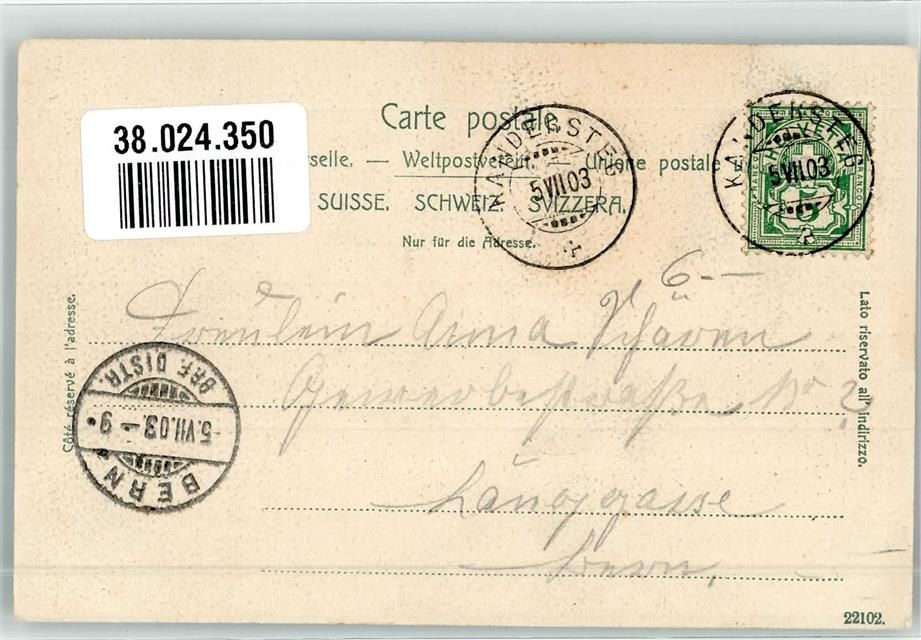 38.024.350
Carte postale.
rselle. — Weltpostverein. — Union postale
SUISSE. SCHWEIZ. SVIZZERA.
Nur für die Adresse.
KANDERSTEG
5 VII 03
KANDERSTEG
5 VII 03
HELVETIA
FRANCO
FRANCO
5
6 —
Fräulein Anna Schären
Gewerbestraße No 2
Länggasse
Bern,
BERN
5.VII.03 – 9
BRF. DISTR.
Côté réservé à l'adresse.
Lato riservato all' indirizzo.
22102.